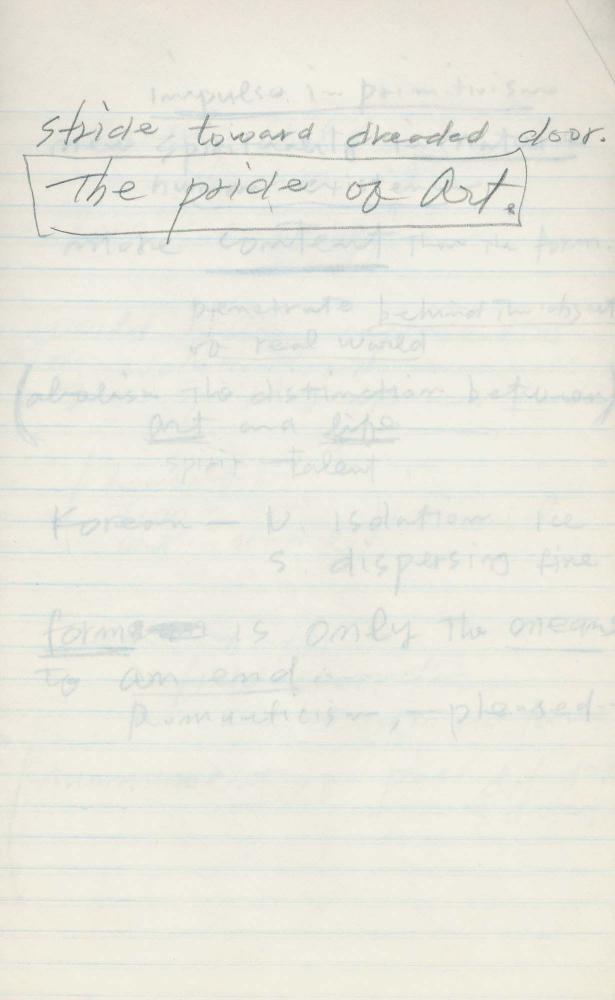 impulse in primitivism
stride toward dreaded door.
The pride of Art.
more content than the form
penetrate behind the
of real world
(abolish the distinction between)
art and life
spirit talent
Korean — N. isolation ice
S. dispersing fire
form is only the means
to an end
Romanticism, — pleased